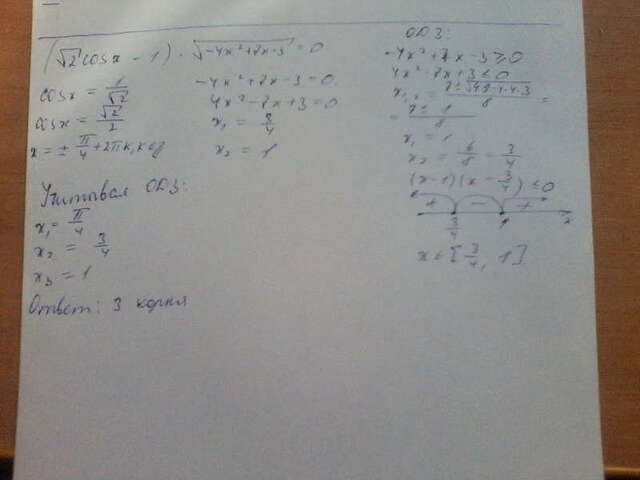 (√2 cosx - 1) · √(-4x²+7x-3) = 0
cosx = 1/√2
cosx = √2/2
x = ± π/4 + 2πk, k∈Z
-4x²+7x-3=0
4x²-7x+3=0
x₁ = 3/4
x₂ = 1
ОДЗ:
-4x²+7x-3≥0
4x²-7x+3≤0
x₁,₂ = (7±√(49-4·4·3))/8 =
= (7±1)/8
x₁ = 1
x₂ = 6/8 = 3/4
(x-1)(x-3/4)≤0
+ - +
3/4 1 x
x∈[3/4, 1]
Учитывая ОДЗ:
x₁ = π/4
x₂ = 3/4
x₃ = 1
Ответ: 3 корня